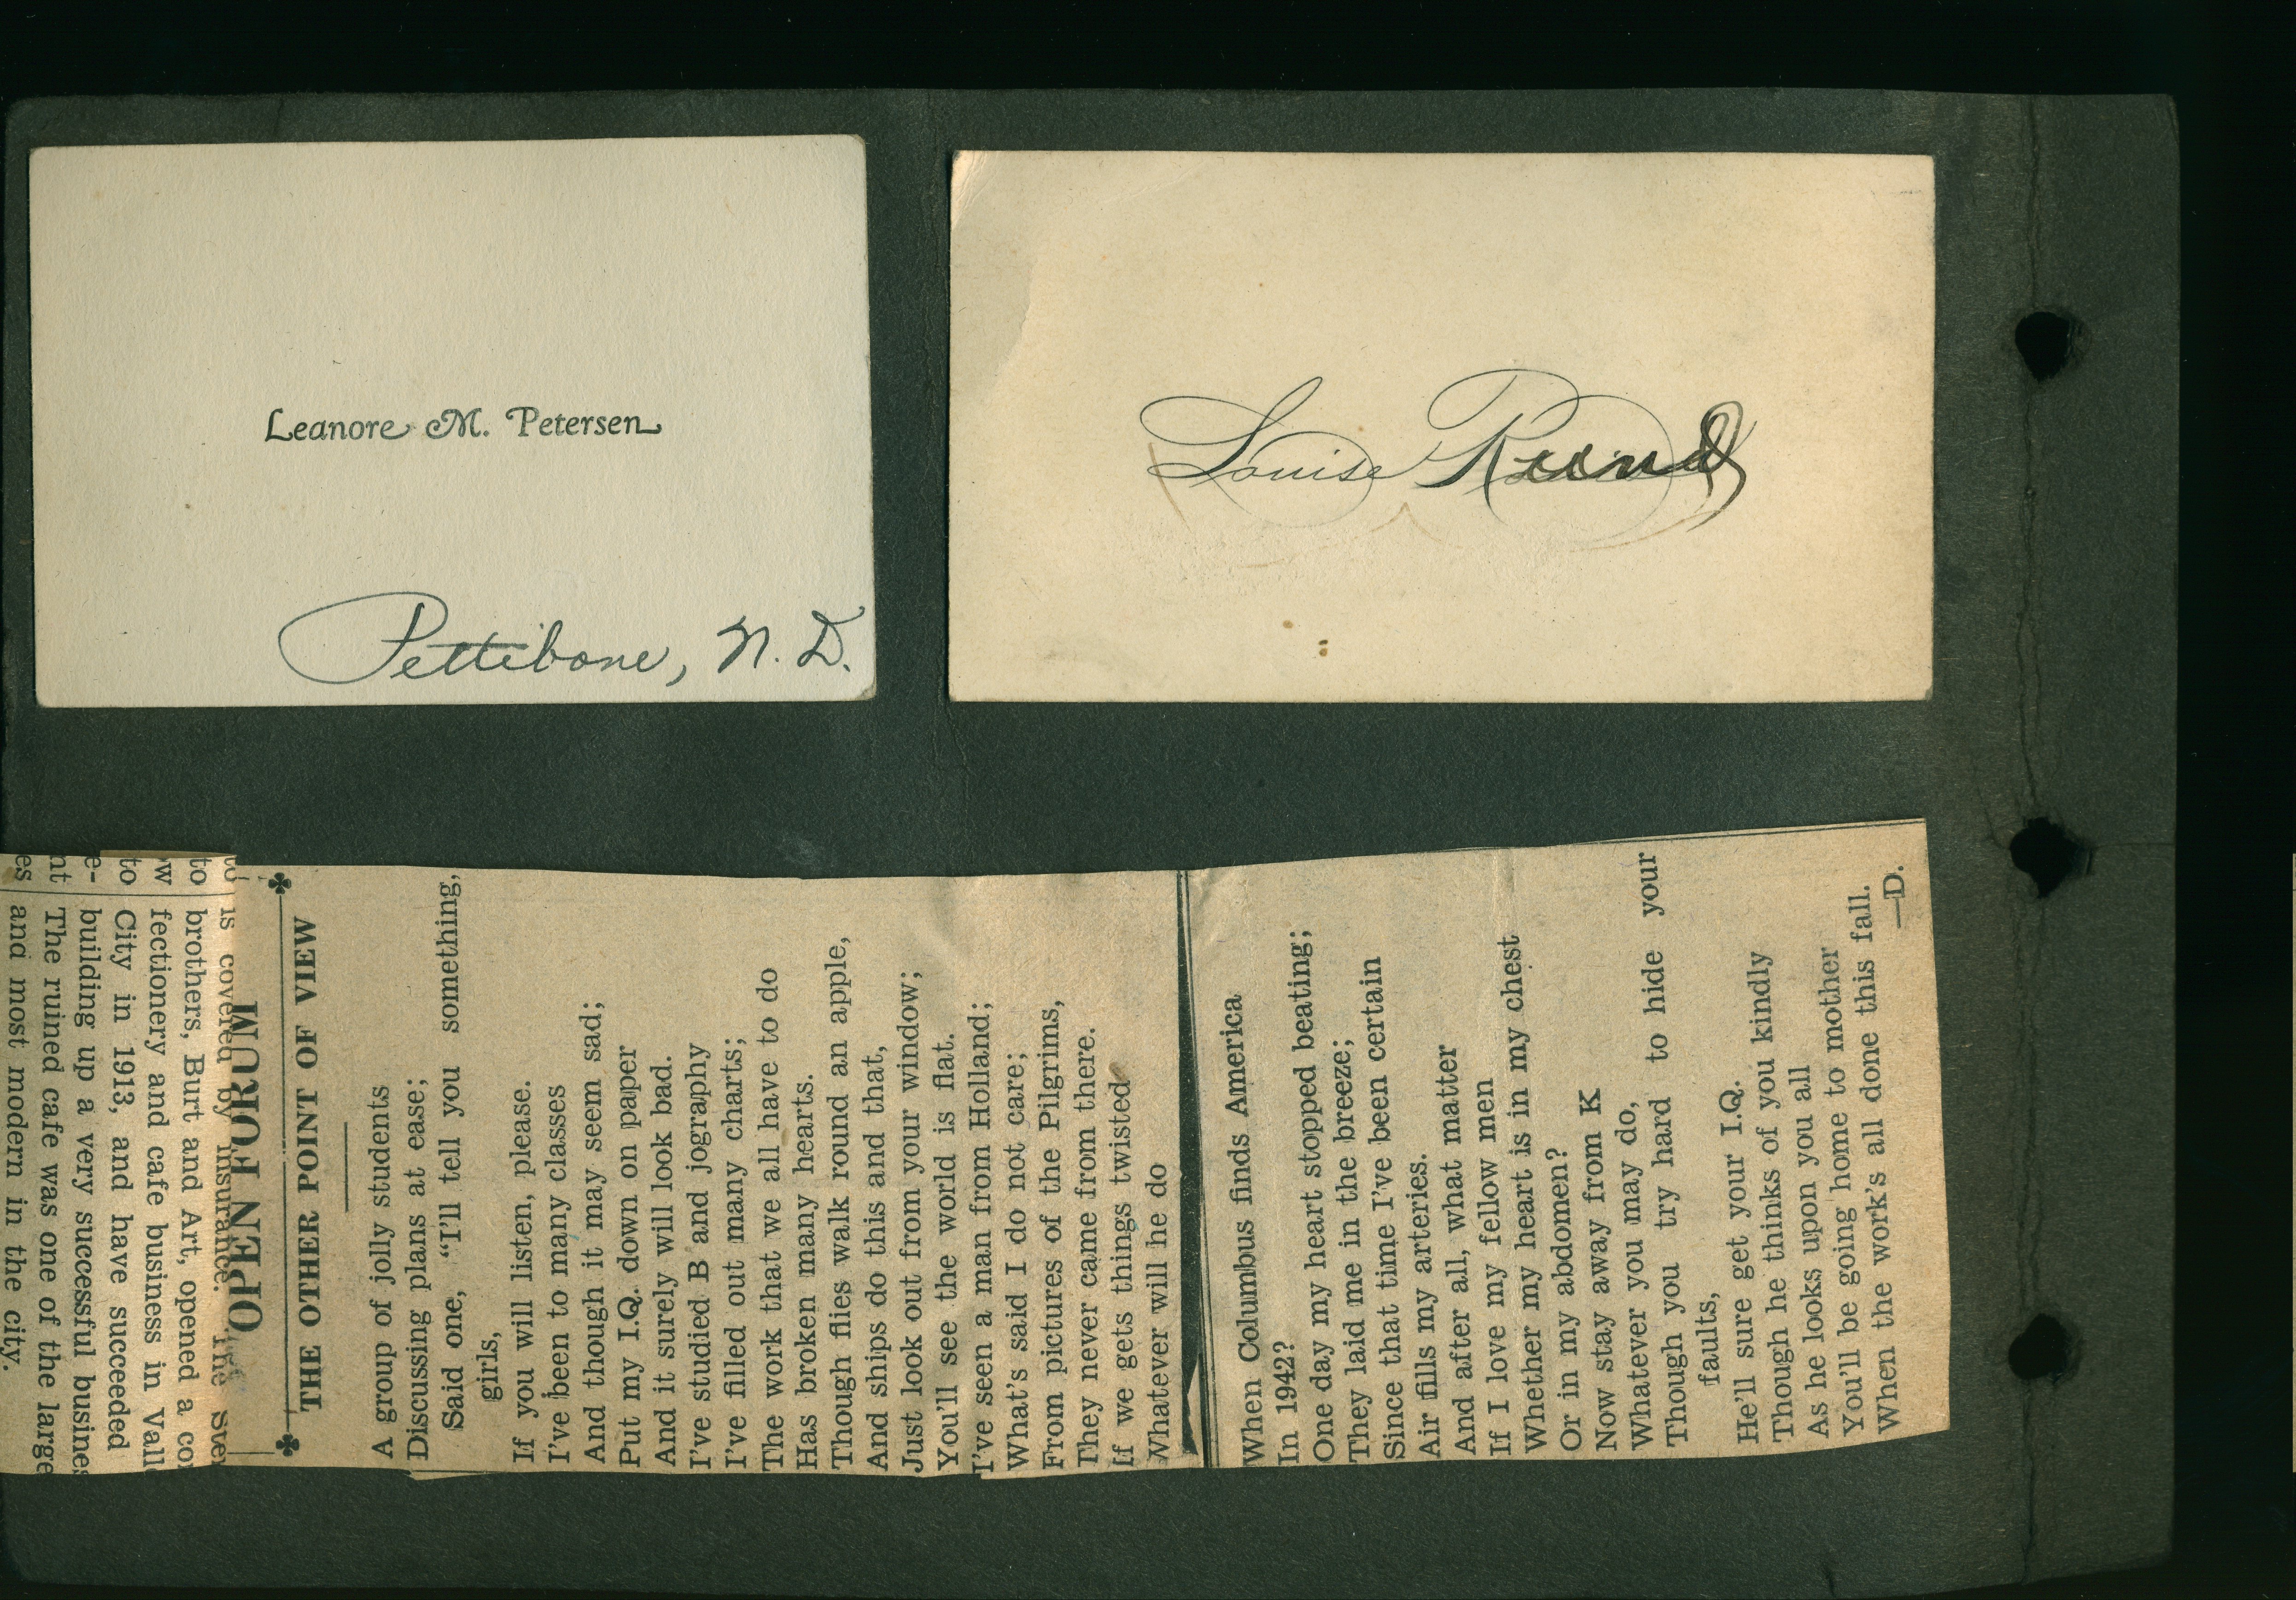 Leanore M. Petersen
Pettibone, N. D.
Louise
to is covered by insurance. The
to brothers, Burt and Art, opened a
fectionery and cafe business in
to City in 1913, and have succeeded
building up a very successful
The ruined cafe was one of the
es and most modern in the city.
OPEN FORUM
THE OTHER POINT OF VIEW
A group of jolly students
Discussing plans at ease;
Said one, "I'll tell you something,
girls,
If you will listen, please.
I've been to many classes
And though it may seem sad;
Put my I.Q. down on paper
And it surely will look bad.
I've studied B and jography
I've filled out many charts;
The work that we all have to do
Has broken many hearts.
Though flies walk round an apple,
And ships do this and that,
Just look out from your window;
You'll see the world is flat.
I've seen a man from Holland;
What's said I do not care;
From pictures of the Pilgrims,
They never came from there.
If we gets things twisted
Whatever will he do
When Columbus finds America
In 1942?
One day my heart stopped beating;
They laid me in the breeze;
Since that time I've been certain
Air fills my arteries.
And after all, what matter
If I love my fellow men
Whether my heart is in my chest
Or in my abdomen?
Now stay away from K
Whatever you may do,
Though you try hard to hide your
faults,
He'll sure get your I.Q.
Though he thinks of you kindly
As he looks upon you all
You'll be going home to mother
When the work's all done this fall.
—D.